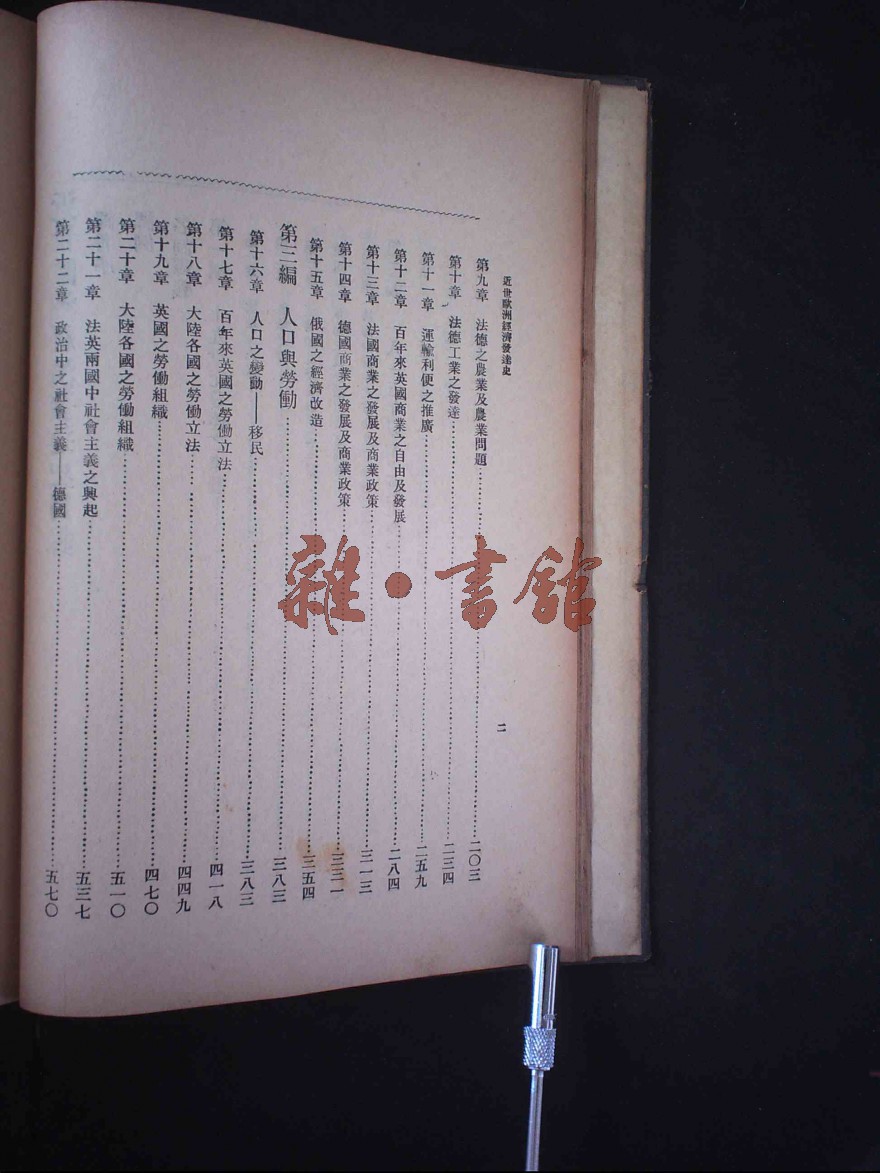 近世歐洲經濟發達史
二
第九章 法德之農業及農業問題……二〇三
第十章 法德工業之發達……二三四
第十一章 運輸利便之推廣……二五九
第十二章 百年來英國商業之自由及發展……二八四
第十三章 法國商業之發展及商業政策……三一三
第十四章 德國商業之發展及商業政策……三三一
第十五章 俄國之經濟改造……三五四
第三編 人口與勞働……三八三
第十六章 人口之變動——移民……三八三
第十七章 百年來英國之勞働立法……四一八
第十八章 大陸各國之勞働立法……四四九
第十九章 英國之勞働組織……四七〇
第二十章 大陸各國之勞働組織……五一〇
第二十一章 法英兩國中社會主義之興起……五三七
第二十二章 政治中之社會主義——德國……五七〇
雜·書館